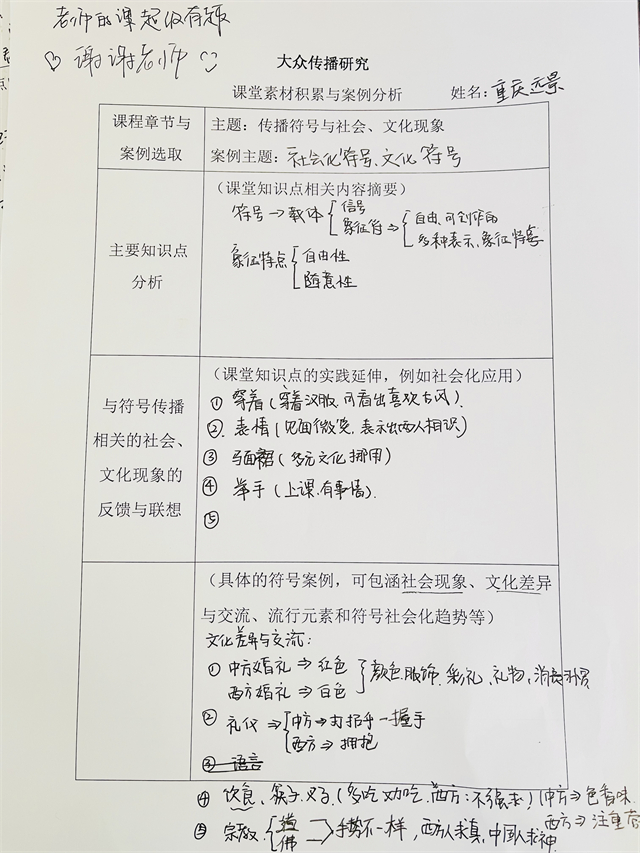 老师的课超级有趣
♡ 谢谢老师
大众传播研究
课堂素材积累与案例分析 姓名:重庆远景
课程章节与
案例选取
主题:传播符号与社会、文化现象
案例主题:社会化符号、文化符号
主要知识点
分析
(课堂知识点相关内容摘要)
符号→载体 { 信号
象征符 ⇒ { 自由、可创作的
多种表示、象征
象征特点 { 自由性
随意性
与符号传播
相关的社会、
文化现象的
反馈与联想
(课堂知识点的实践延伸,例如社会化应用)
① 穿着(穿着汉服,可看出喜欢古风).
②. 表情(见面微笑,表示出两人相识)
③ 马面裙(多元文化挪用)
④ 举手(上课.有事情).
⑤
(具体的符号案例,可包涵社会现象、文化差异
与交流、流行元素和符号社会化趋势等)
文化差异与交流:
① 中方婚礼 ⇒ 红色
西方婚礼 ⇒ 白色 } 颜色.服饰.彩礼、礼物,消费习惯
② 礼仪 ⇒ { 中方→打招乎—握手
西方⇒ 拥抱
③ 语言
④ 饮食、筷子.叉子.(多吃劝吃.西方:不强求)(中方⇒色香味
西方⇒注重营
⑤ 宗教.{ 道
佛 } 手势不一样,西方人求真,中国人求神